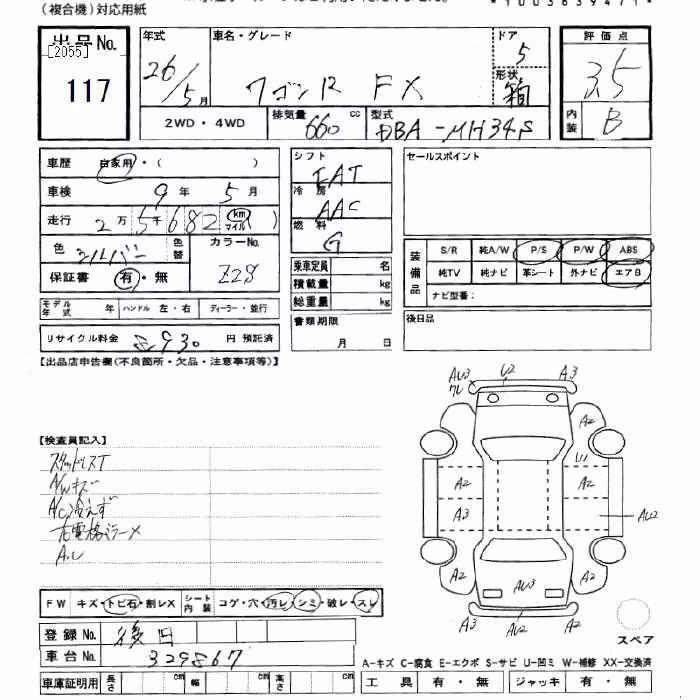 (複合機)対応用紙
出品No.
[2055]
117
年式
26/5月
車名・グレード
ワゴンR FX
ドア
5
形状
箱
評価点
3.5
内装
B
2WD・4WD
排気量
660
cc
型式
DBA-MH34S
車歴
自家用・( )
車検
9年 5月
走行
2万5千682
km
マイル
)
色
シルバー
色替
カラーNo.
Z2S
保証書
有・無
モデル年式
年
ハンドル 左・右
ディーラー・並行
リサイクル料金
円 預託済
シフト
FAT
冷房
AAC
燃料
G
乗車定員
名
積載量
kg
総重量
kg
書類期限
月 日
セールスポイント
装備品
S/R
純A/W
P/S
P/W
ABS
純TV
純ナビ
革シート
外ナビ
エアB
ナビ型番:
後日品
【出品店申告欄(不良箇所・欠品・注意事項等)】
【検査員記入】
スタッドレスT
A/Wキズ
A/C冷えず
右電格ミラー×
A.U
AU3
ワレ
U2
A3
A2
U1
A2
A2
A3
A2
AU2
A2
A2
AU3
A3
AU2
A3
スペア
FW
キズ・トビ石・割レX
シート内装
コゲ・穴・汚レ・シミ・破レ・スレ
登録No.
後日
車台No.
329867
車庫証明用
長さ
cm
幅
cm
高さ
cm
A-キズ C-腐食 E-エクボ S-サビ U-凹ミ W-補修 XX-交換済
工具
有・無
ジャッキ
有・無